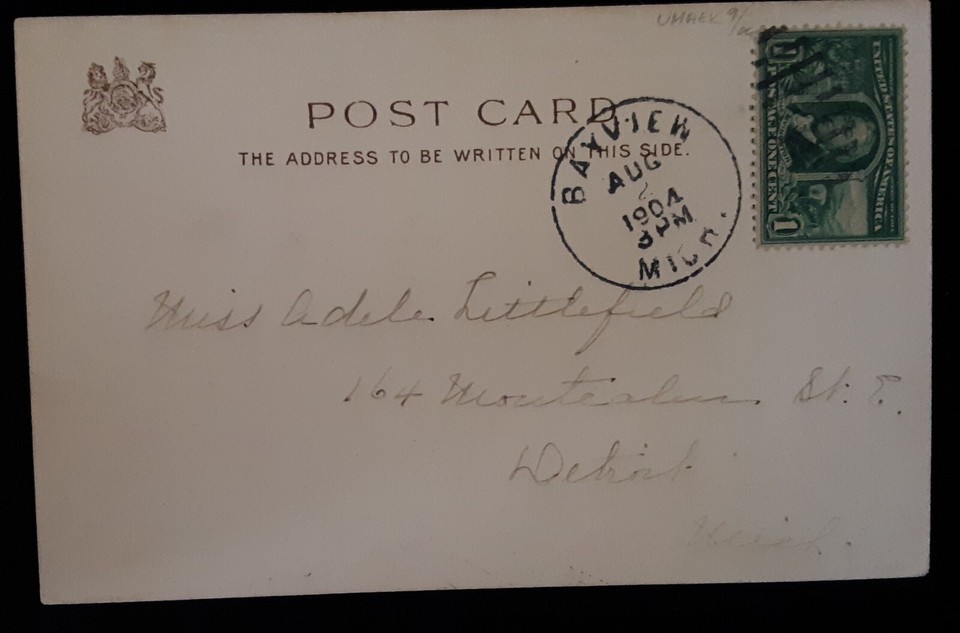 POST CARD
THE ADDRESS TO BE WRITTEN ON THIS SIDE.
BAYVIEW
AUG
2
1904
3 PM
MICH.
UNITED STATES OF AMERICA
POSTAGE ONE CENT
1
Miss Adele Littlefield
164 Montcalm St. E.
Detroit
Mich.